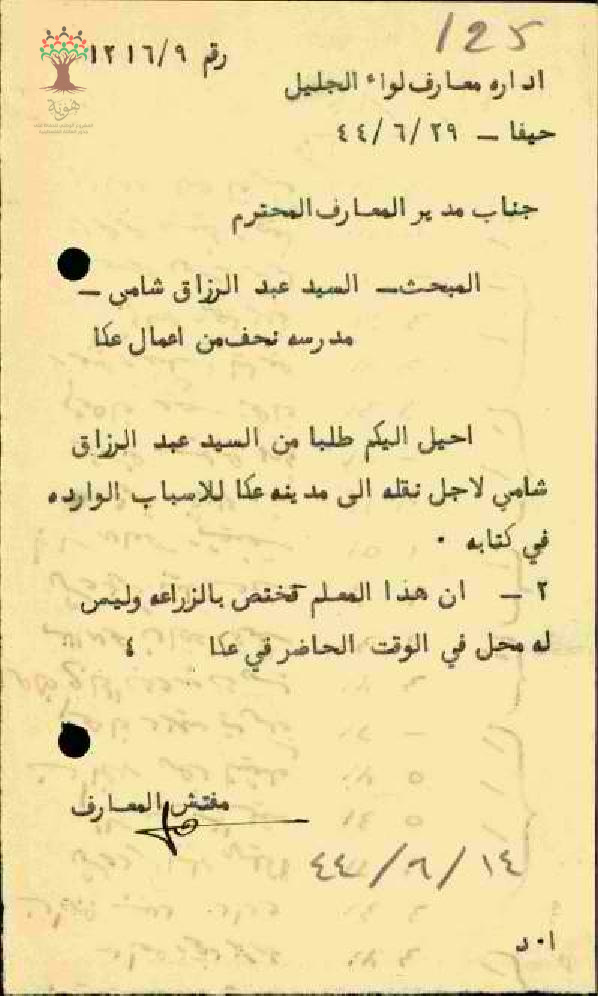 125
رقم ١٢١٦/٩
هوية
اداره معارف لواء الجليل
حيفا – ٤٤/٦/٢٩
جناب مدير المعارف المحترم
المبحث – السيد عبد الرزاق شامي –
مدرسه نحف من اعمال عكا
احيل اليكم طلبا من السيد عبد الرزاق
شامي لاجل نقله الى مدينه عكا للاسباب الوارده
في كتابه ٠
٢ – ان هذا المعلم مختص بالزراعه وليس
له محل في الوقت الحاضر في عكا ٤
مفتش المعارف
٤٤/٦/١٤
ا٠د